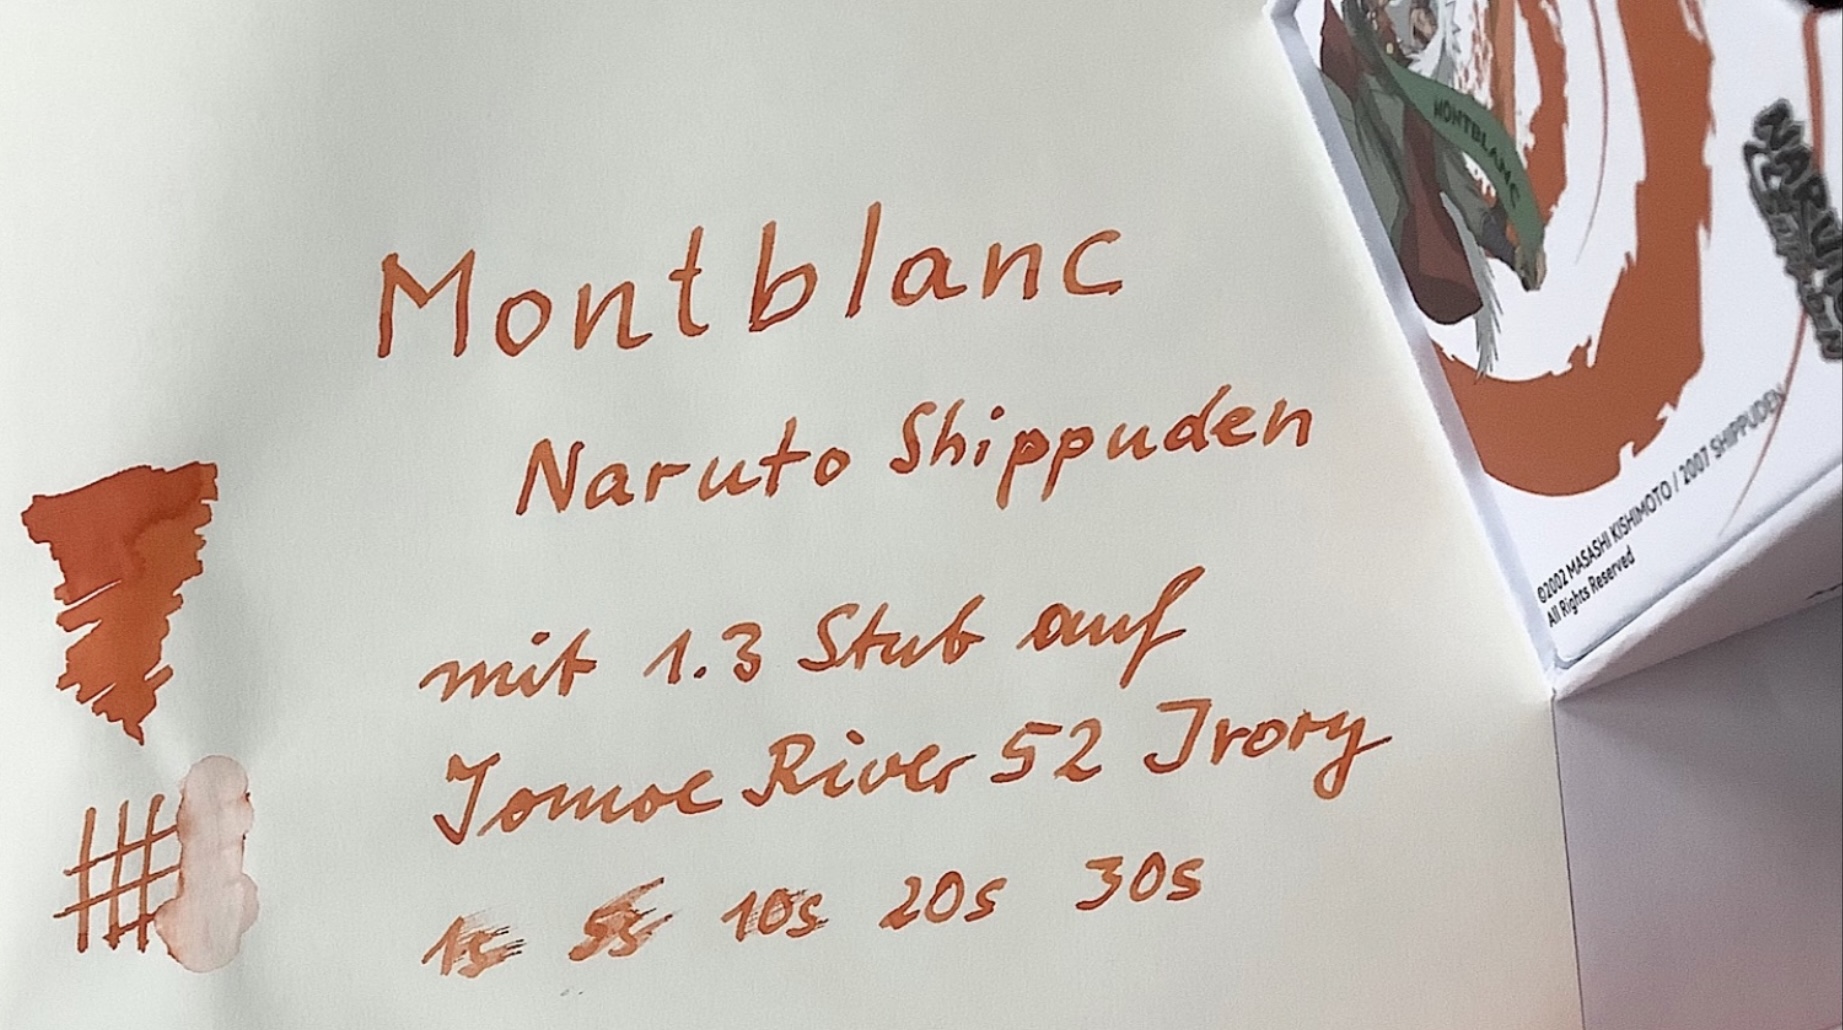 Montblanc
Naruto Shippuden
mit 1.3 Stub auf
Tomoe River 52 Ivory
1s 5s 10s 20s 30s
MONTBLANC
©2002 MASASHI KISHIMOTO / 2007 SHIPPUDEN
All Rights Reserved